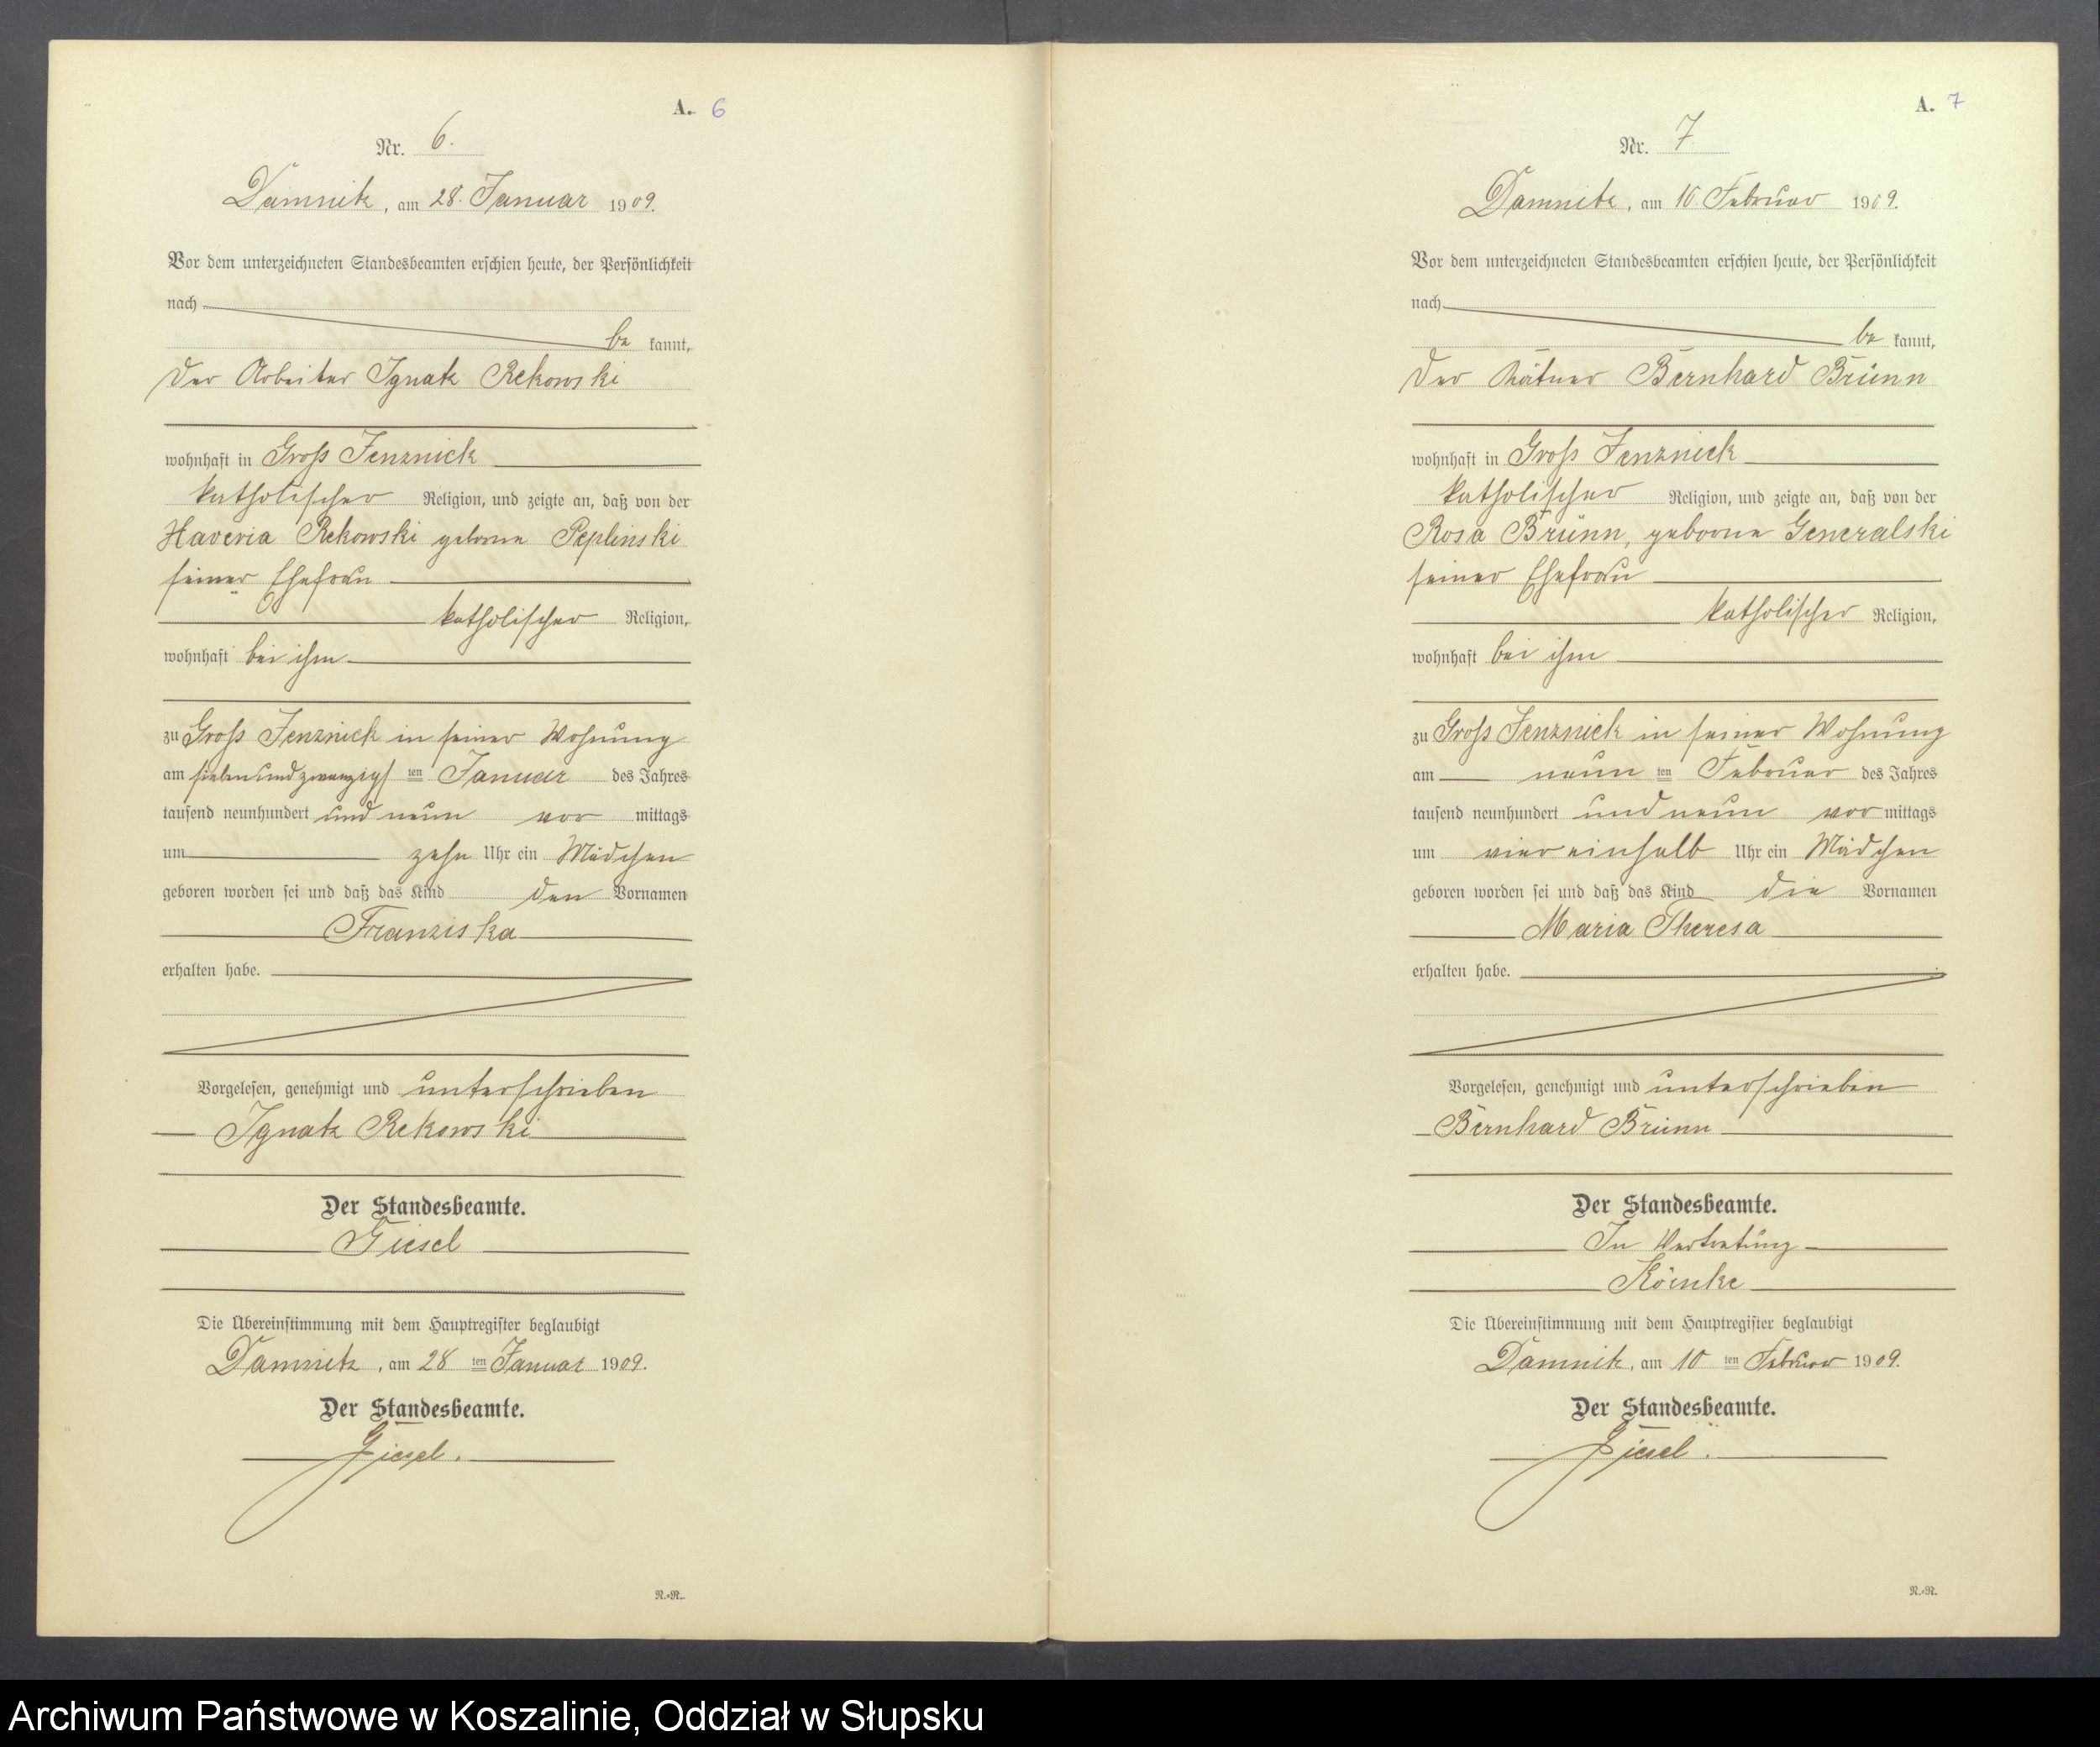 A. 6
Nr. 6.
Damnitz, am 28. Januar 1909.
Vor dem unterzeichneten Standesbeamten erschien heute, der Persönlichkeit
nach
be kannt,
der Arbeiter Ignatz Rekowski
wohnhaft in Groß Jenznick
katholischer Religion, und zeigte an, daß von der
Xaveria Rekowski geborne Peplinski
seiner Ehefrau
katholischer Religion,
wohnhaft bei ihm
zu Groß Jenznick in seiner Wohnung
am siebenundzwanzigsten Januar des Jahres
tausend neunhundert und neun vor mittags
um zehn Uhr ein Mädchen
geboren worden sei und daß das Kind den Vornamen
Franziska
erhalten habe.
Vorgelesen, genehmigt und unterschrieben
Ignatz Rekowski
Der Standesbeamte.
Giesel
Die Übereinstimmung mit dem Hauptregister beglaubigt
Damnitz, am 28 ten Januar 1909.
Der Standesbeamte.
Giesel.
N.-N.
A. 7
Nr. 7
Damnitz, am 10. Februar 1909.
Vor dem unterzeichneten Standesbeamten erschien heute, der Persönlichkeit
nach
be kannt,
der Kätner Bernhard Brünn
wohnhaft in Groß Jenznick
katholischer Religion, und zeigte an, daß von der
Rosa Brünn, geborne Generalski
seiner Ehefrau
katholischer Religion,
wohnhaft bei ihm
zu Groß Jenznick in seiner Wohnung
am neun ten Februar des Jahres
tausend neunhundert und neun vor mittags
um vier einhalb Uhr ein Mädchen
geboren worden sei und daß das Kind die Vornamen
Maria Theresa
erhalten habe.
Vorgelesen, genehmigt und unterschrieben
Bernhard Brünn
Der Standesbeamte.
In Vertretung
Die Übereinstimmung mit dem Hauptregister beglaubigt
Damnitz, am 10 ten Februar 1909.
Der Standesbeamte.
Giesel.
N.-N.
Archiwum Państwowe w Koszalinie, Oddział w Słupsku